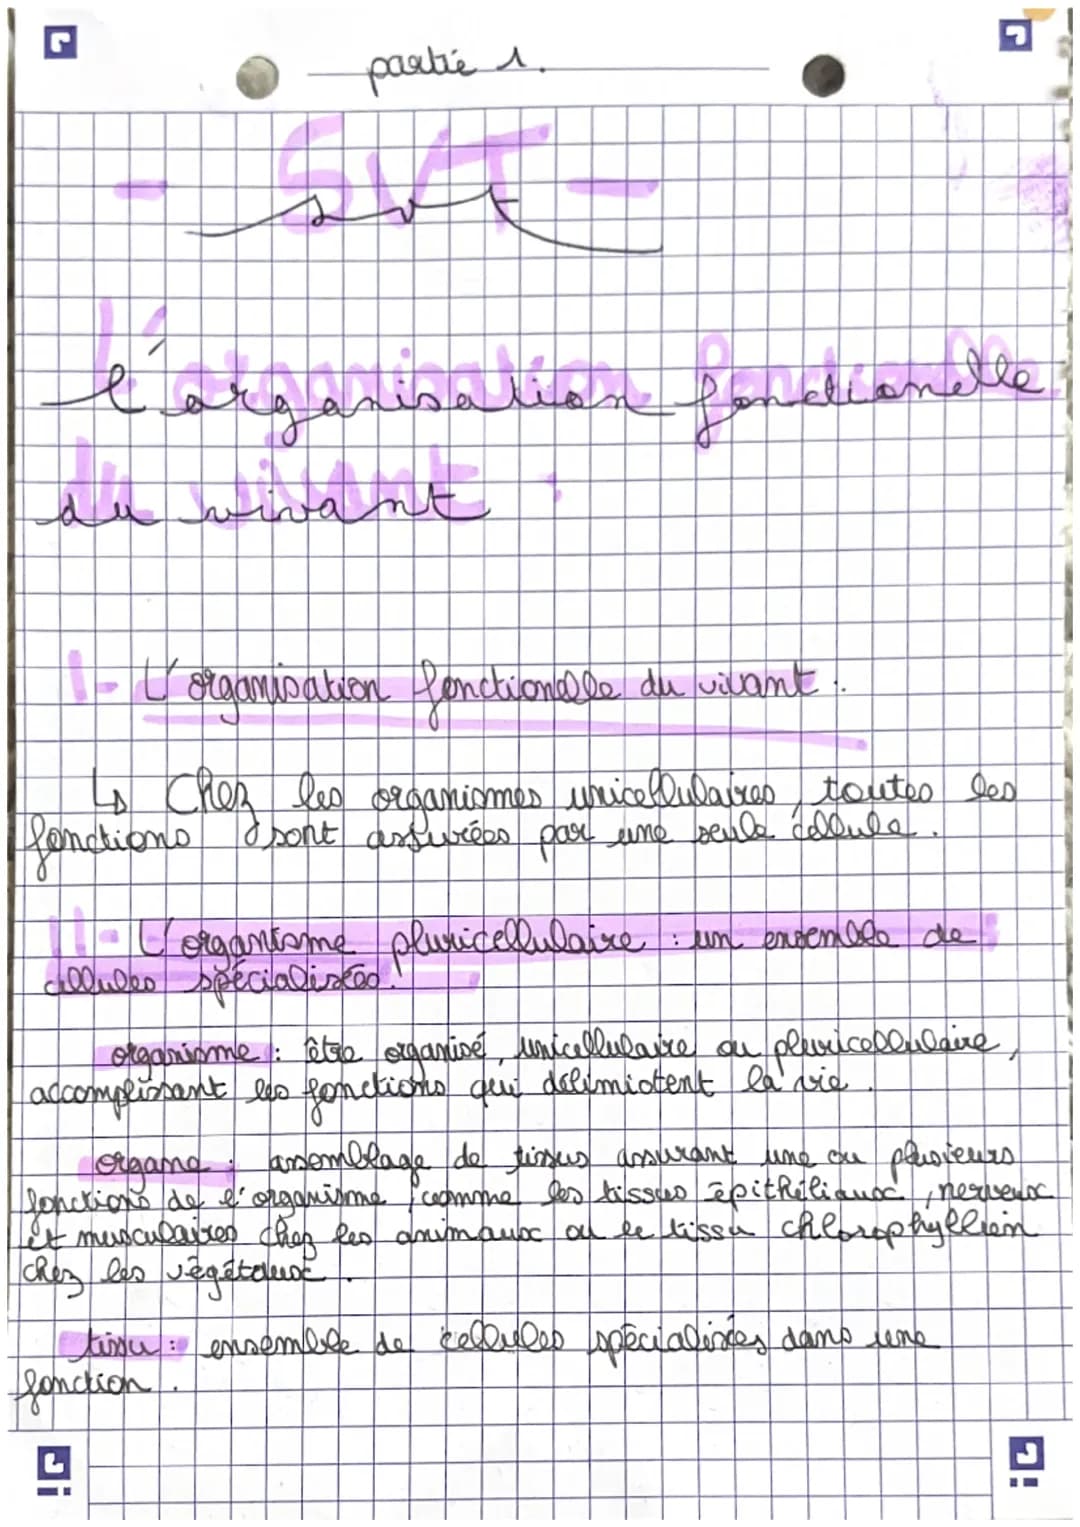 partie 1.
- SVT -
svt
l'organisation fonctionelle
du vivant :
I- L'organisation fonctionelle du vivant :
↳ Chez les organismes unicellulaires, toutes les
fonctions sont assurées par une seule cellule.
II- L'organisme pluricellulaire : un ensemble de
cellules spécialisées.
organisme : être organisé, unicellulaire ou pluricellulaire,
accomplissant les fonctions qui délimiotent la vie.
organe : assemblage de tissus assurant une ou plusieurs
fonctions de l'organisme, comme les tissus épithéliaux, nerveux
et musculaires chez les animaux ou le tissu chlorophyllien
chez les végétaux.
tissu : ensemble de cellules spécialisées dans une
fonction.